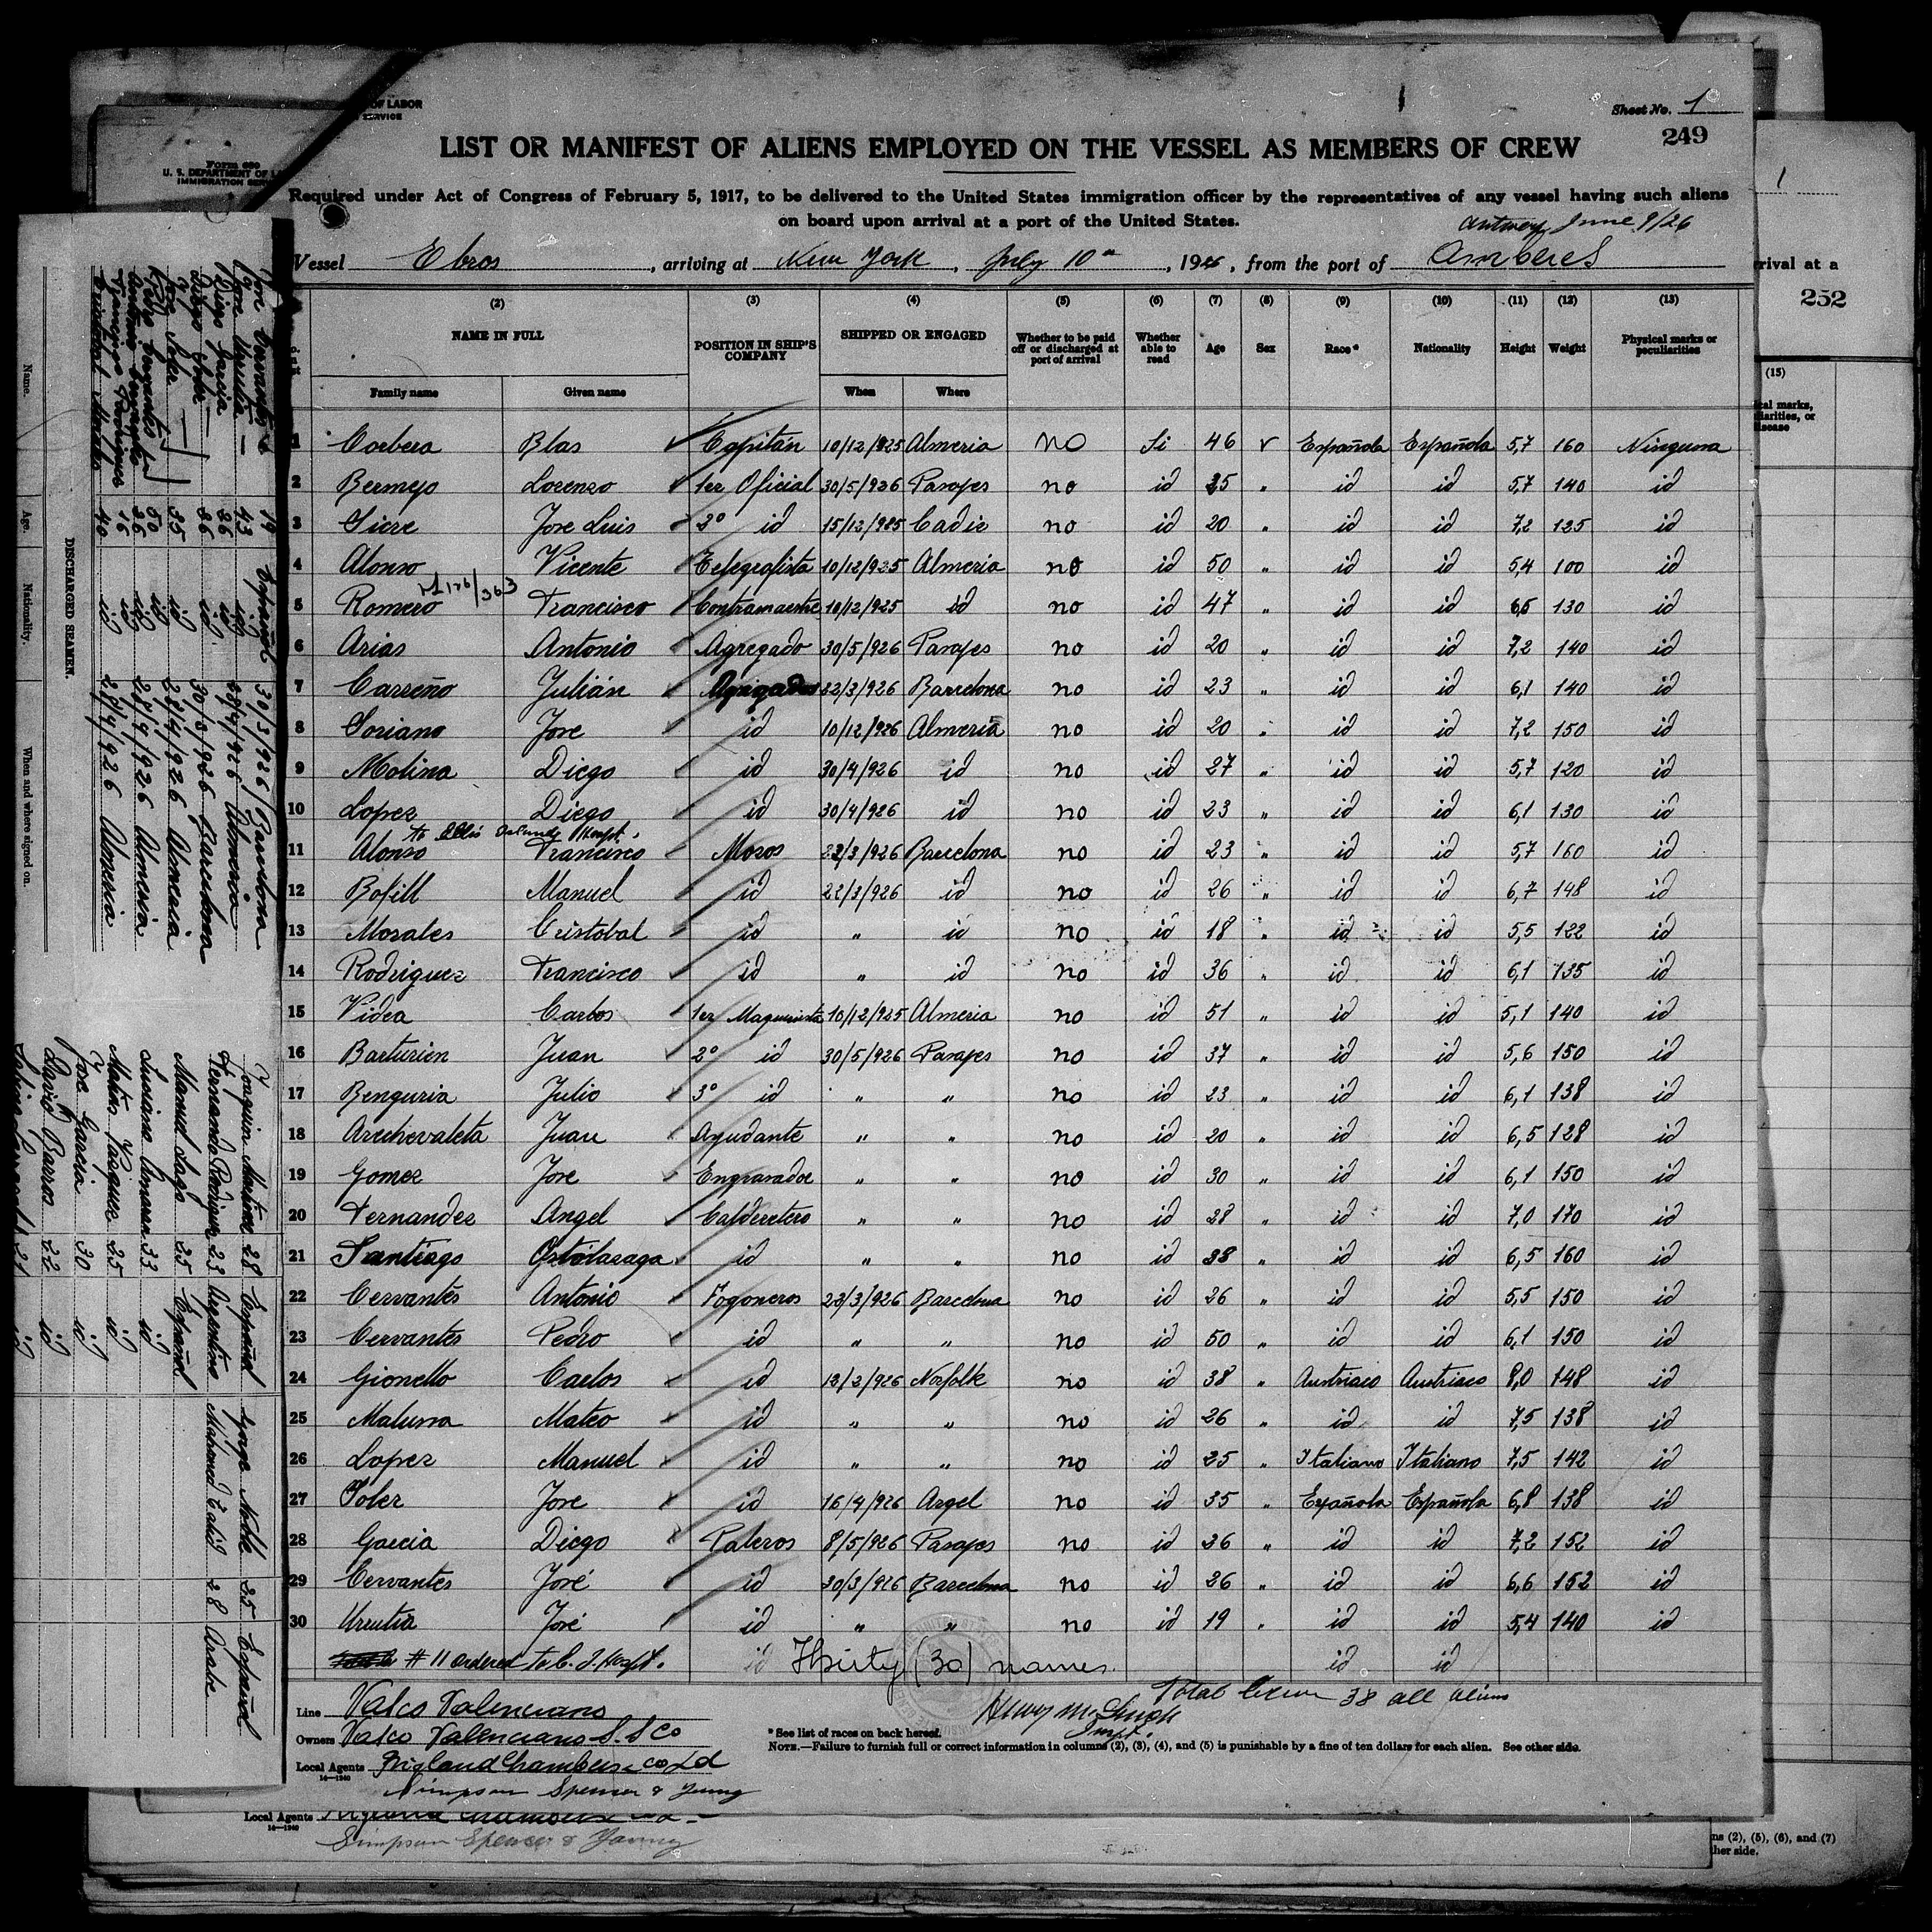 OF LABOR
SERVICE
Form 680
U. S. DEPARTMENT OF L
IMMIGRATION SER
Sheet No. 1
249
LIST OR MANIFEST OF ALIENS EMPLOYED ON THE VESSEL AS MEMBERS OF CREW
Required under Act of Congress of February 5, 1917, to be delivered to the United States immigration officer by the representatives of any vessel having such aliens
on board upon arrival at a port of the United States.
Antwerp June 9/26
Vessel Ebros, arriving at New York, July 10th, 1926, from the port of Amberes
(2) (3) (4) (5) (6) (7) (8) (9) (10) (11) (12) (13)
NAME IN FULL POSITION IN SHIP'S COMPANY SHIPPED OR ENGAGED Whether to be paid off or discharged at port of arrival Whether able to read Age Sex Race* Nationality Height Weight Physical marks or peculiarities
Family name Given name When Where
1 Corbera Blas Capitán 10/12/925 Almeria no Si 46 v Española Española 5,7 160 Ninguna
2 Bermejo Lorenzo 1er Oficial 30/5/926 Pasajes no id 35 " id id 5,7 140 id
3 Sicre Jose Luis 3º id 15/12/925 Cadiz no id 20 " id id 7,2 125 id
4 Alonso Vicente Telegrafista 10/12/925 Almeria no id 50 " id id 5,4 100 id
5 Romero Francisco Contramaestre 10/12/925 id no id 47 " id id 6,6 130 id
6 Arias Antonio Agregado 30/5/926 Pasajes no id 20 " id id 7,2 140 id
7 Carreño Julián Agregados 22/3/926 Barcelona no id 23 " id id 6,1 140 id
8 Soriano Jose id 10/12/926 Almeria no id 20 " id id 7,2 150 id
9 Molina Diego id 30/4/926 id no id 27 " id id 5,7 120 id
10 Lopez Diego id 30/4/926 id no id 23 " id id 6,1 130 id
to Ellis Island Hospt.
11 Alonso Francisco Mozos 22/3/926 Barcelona no id 23 " id id 5,7 160 id
12 Bofill Manuel id 22/3/926 id no id 26 " id id 6,7 148 id
13 Morales Cristobal id " id no id 18 " id id 5,5 122 id
14 Rodriguez Francisco id " id no id 36 " id id 6,1 135 id
15 Videa Carlos 1er Maquinista 10/12/925 Almeria no id 51 " id id 5,1 140 id
16 Barturien Juan 2º id 30/5/926 Pasajes no id 37 " id id 5,6 150 id
17 Benguria Julio 3º id " " no id 23 " id id 6,1 138 id
18 Arechevaleta Juan Ayudante " " no id 20 " id id 6,5 128 id
19 Gomez Jose Engrasador " " no id 30 " id id 6,1 150 id
20 Fernandez Angel Calderetero " " no id 28 " id id 7,0 170 id
21 Santiago Ostolazaga id " " no id 38 " id id 6,5 160 id
22 Cervantes Antonio Fogoneros 23/3/926 Barcelona no id 26 " id id 5,5 150 id
23 Cervantes Pedro id " " no id 50 " id id 6,1 150 id
24 Gionello Carlos id 12/2/926 Norfolk no id 38 " Austriaco Austriaco 8,0 148 id
25 Matusna Mateo id " " no id 26 " id id 7,5 138 id
26 Lopez Manuel id " " no id 25 " Italiano Italiano 7,5 142 id
27 Soler Jose id 16/4/926 Argel no id 35 " Española Española 6,8 138 id
28 Garcia Diego Paleros 8/5/926 Pasajes no id 36 " id id 7,2 152 id
29 Cervantes José id 30/3/926 Barcelona no id 26 " id id 6,6 152 id
30 Urrutia José id " " no id 19 " id id 5,4 140 id
# 11 ordered to E. I. Hospt. id Thirty (30) names id id
Total Crew 38 all aliens
Line Vasco Valenciano
Owners Vasco Valenciano S. S Co
Local Agents Grigland Chambers co Ld
14—1240
Simpson Spence & Young
Inspt.
* See list of races on back hereof.
NOTE.—Failure to furnish full or correct information in columns (2), (3), (4), and (5) is punishable by a fine of ten dollars for each alien. See other side.
Local Agents
14—1240
Simpson Spence & Young
DISCHARGED SEAMEN.
Name. Age. Nationality. When and where signed on.
Jose Cervantes 19 Español 30/3/926 Barcelona
Jose Urrutia 43 id Almeria
Diego Garcia 26 id
Diego Soler 36 id 30/3/926 Barcelona
Jose Soler 35 id 28/4/926 Almeria
Pedro Cervantes 50 id
Antonio Cervantes 26 id 28/4/926 Almeria
Francisco Rodriguez 16 id
Cristobal Morales 40 id 28/4/926 Almeria
Joaquin Martinez 28 Español
Fernando Rodriguez 23 Argentino
Manuel Lago 25 Español
Luciano 33 id
Matias Vazquez 25 id
Jose Garcia 30 id
David Barros 22 id
Jorge Noble 25 Español
Mahomed 28 Arabe
1
rival at a
252
(15)
cal marks,
liarities, or
isease
ns (2), (5), (6), and (7)
ther side.